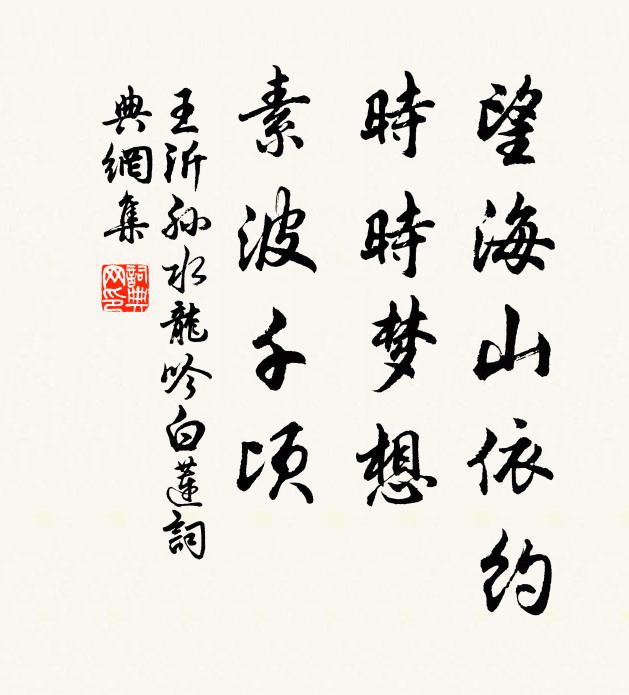 望海山依约
時時梦想
素波千顷
王沂孙水龍吟白蓮詞
典網集
詞典网印